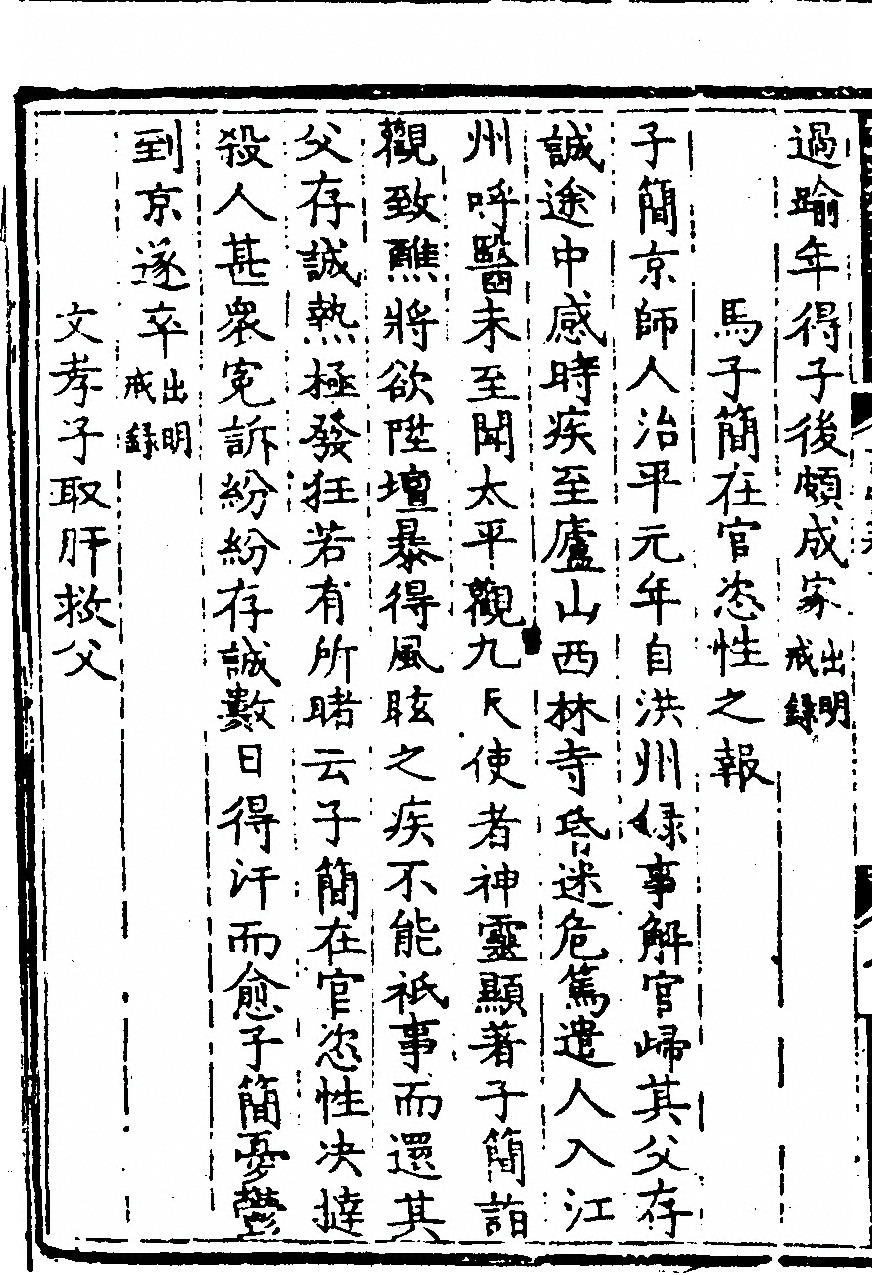 過踰年得子後頗成家出明戒錄
馬子簡在官恣性之報
子簡京師人治平元年自洪州録事解官歸其父存
誠途中感時疾至廬山西林寺昏迷危篤遣人入江
州呼醫未至聞太平觀九天使者神靈顯著子簡詣
觀致醮將欲陞壇暴得風眩之疾不能祇事而還其
父存誠熱極發狂若有所睹云子簡在官恣性决撻
殺人甚衆寃訴紛紛存誠數日得汗而愈子簡憂鬱
到京遂卒出明戒錄
文孝子取肝救父